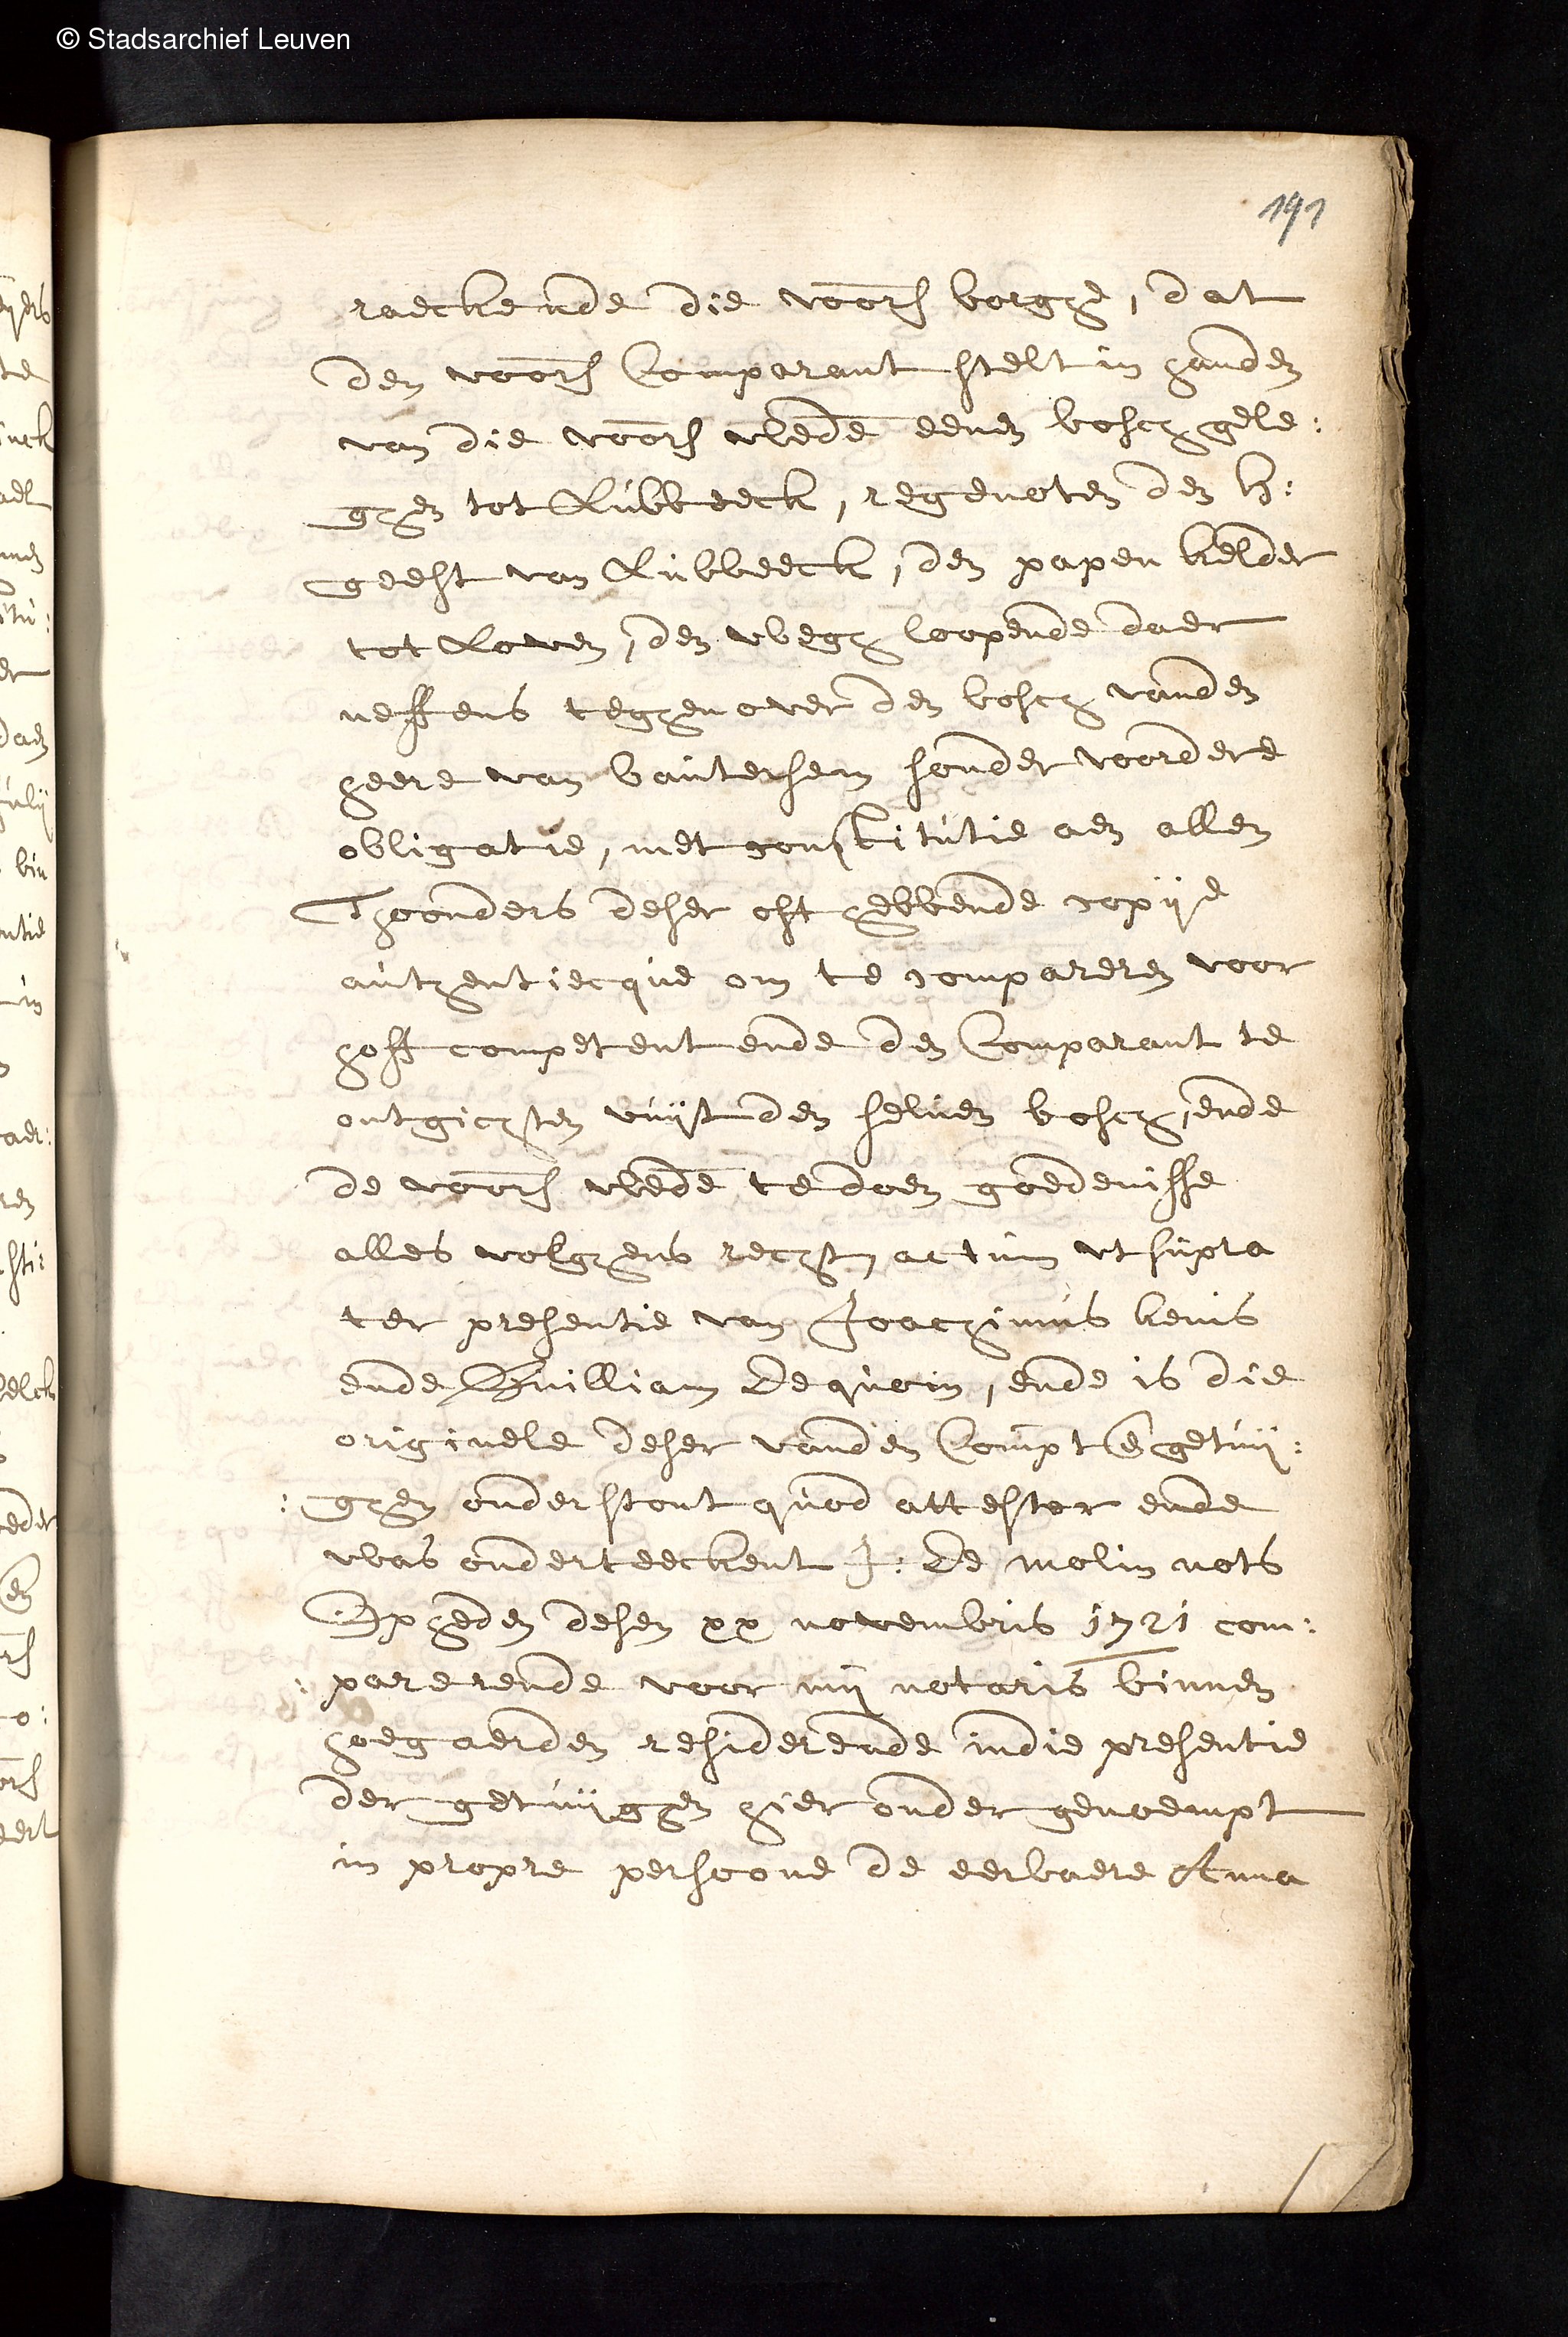 © Stadsarchief Leuven
191
raeckende die voors borghe, dat
den voors Comparant stelt in handen
van die voors wede eenen bosch gele:
ghen tot Lubbeeck, regenoten den h:
geest van Lubbeeck, den papen kelder
tot Loven, den wegh loopende daer
neffens teghenover den bosch vanden
heere van bautersem sonder voordere
obligatie, met constitutie aen allen
Thoonders deser oft hebbende copije
authentiecque om te compareren voor
hoff competent ende den Comparant te
onthichten vuijt den selven bosch, ende
de voors wede te doen goedenisse
alles volghens recht, actum ut supra
ter presentie van Joachimus kenis
ende Guilliam Dequoin, ende is die
originele deser vanden Compt en getuij:
:ghen onderstont quod attestor ende
was onderteeckent J: De molin nots
Opheden desen xx novembris 1721 com:
:parerende voor mij notaris binnen
hoegaerden residerende indie presentie
der getuijghen hier onder genoempt
in propre persoone de eerbaere Anna